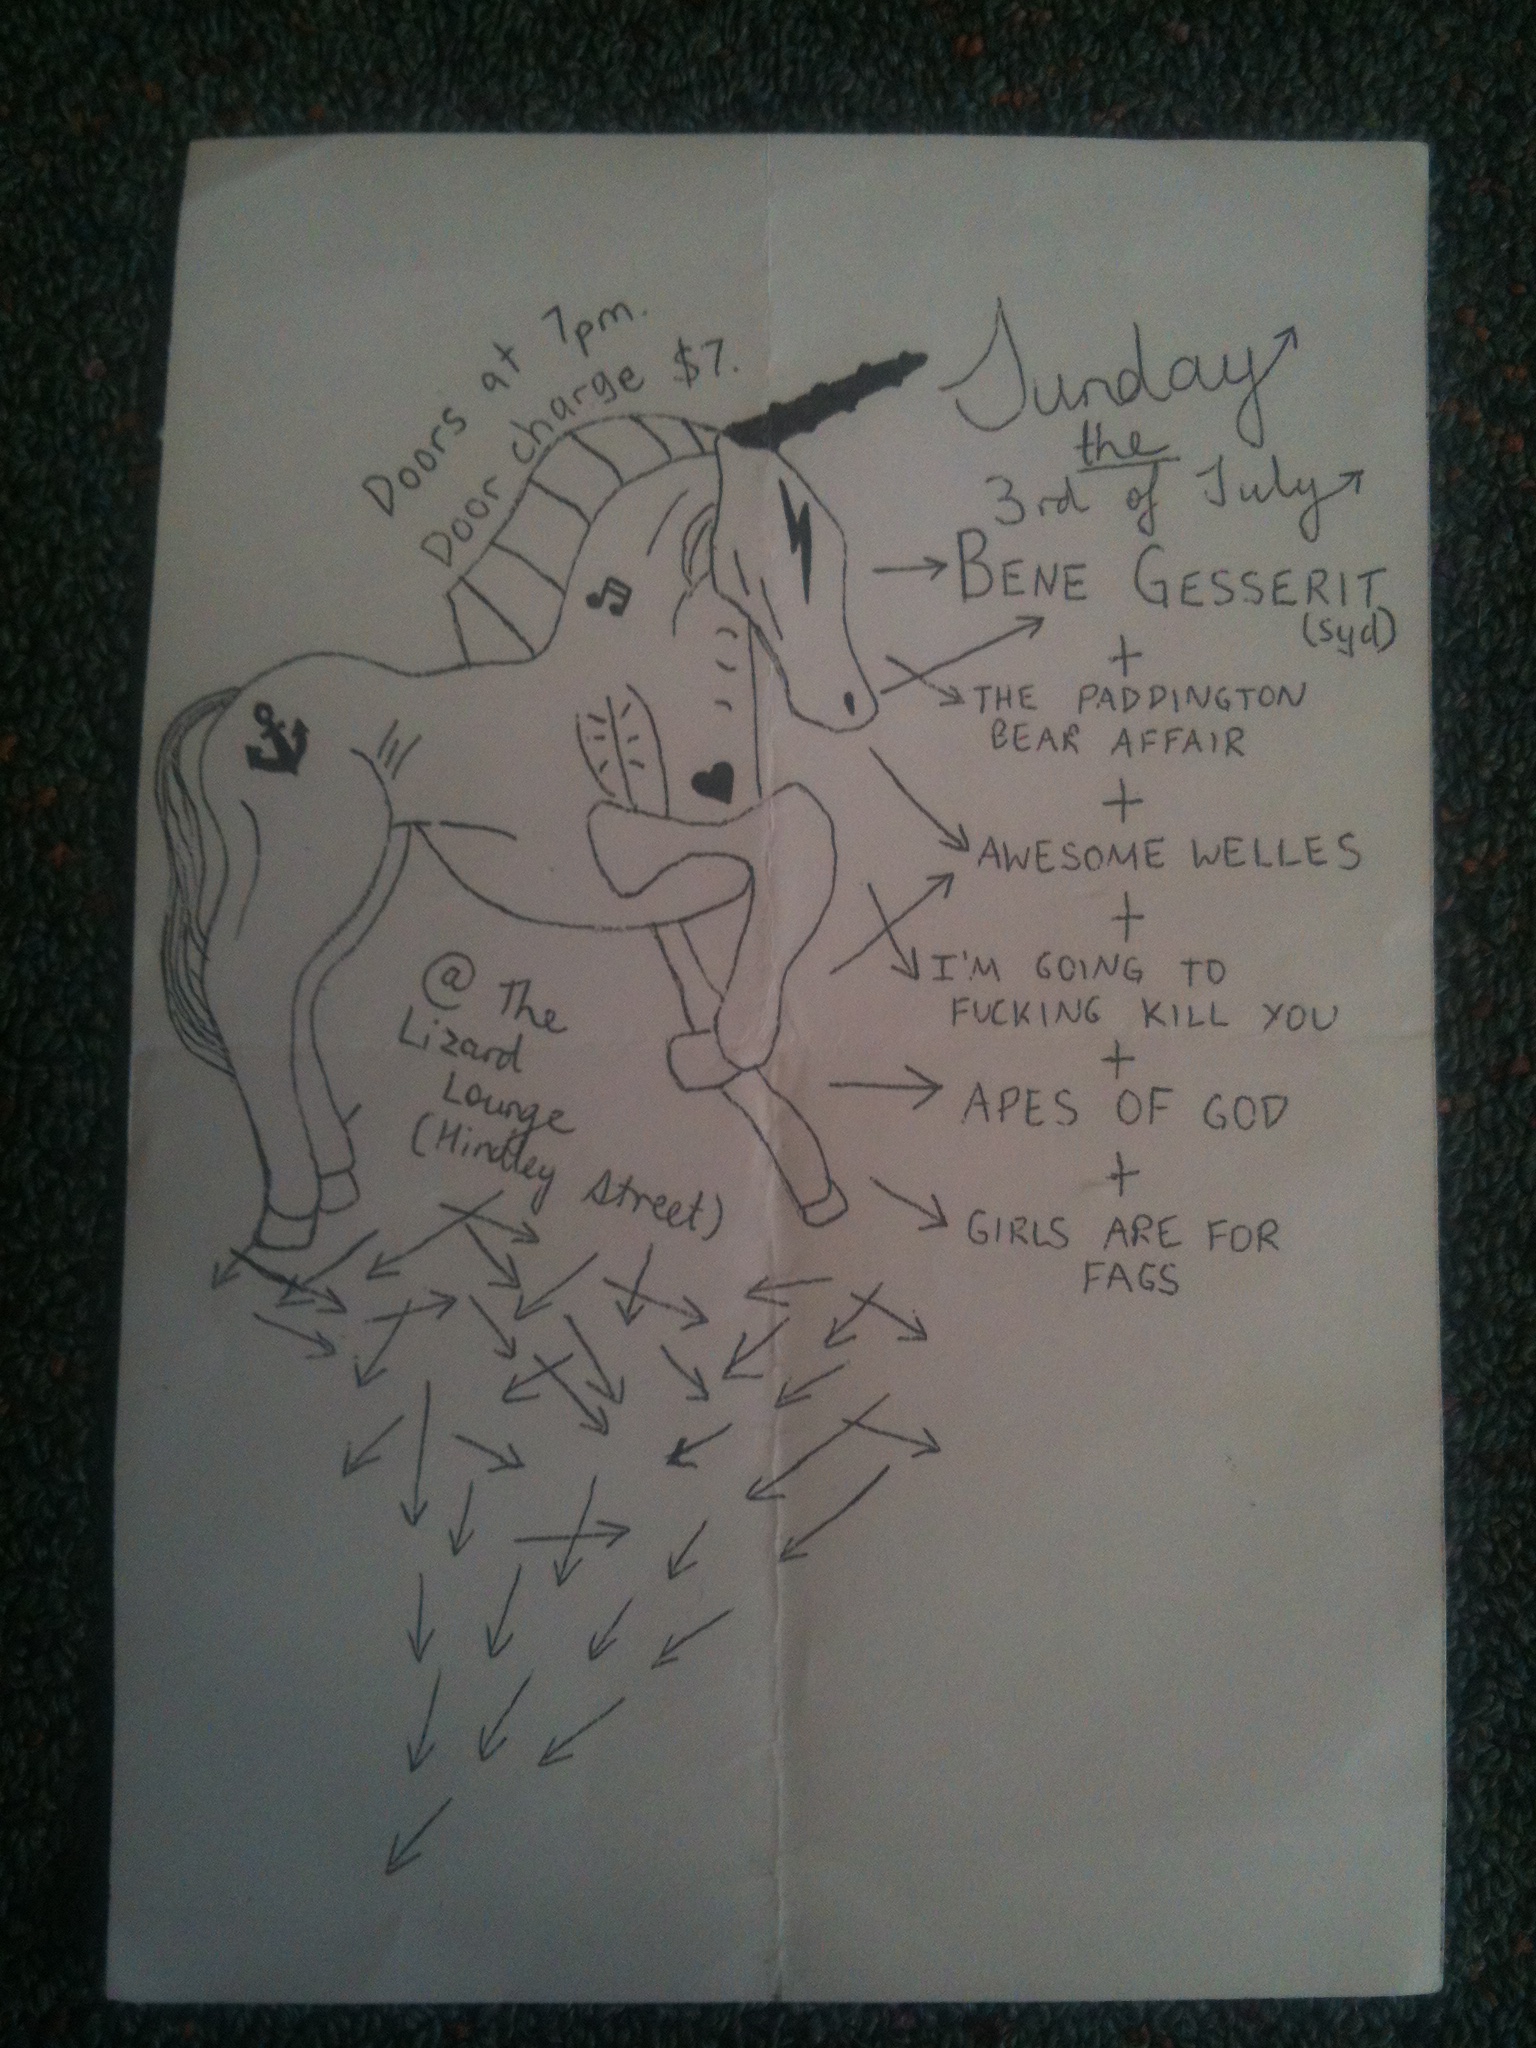 Doors at 7pm.
Door charge $7.
Sunday
the
3rd of July
BENE GESSERIT
(syd)
+
THE PADDINGTON
BEAR AFFAIR
+
AWESOME WELLES
+
I'M GOING TO
FUCKING KILL YOU
+
APES OF GOD
+
GIRLS ARE FOR
FAGS
@ The
Lizard
Lounge
(Hindley Street)